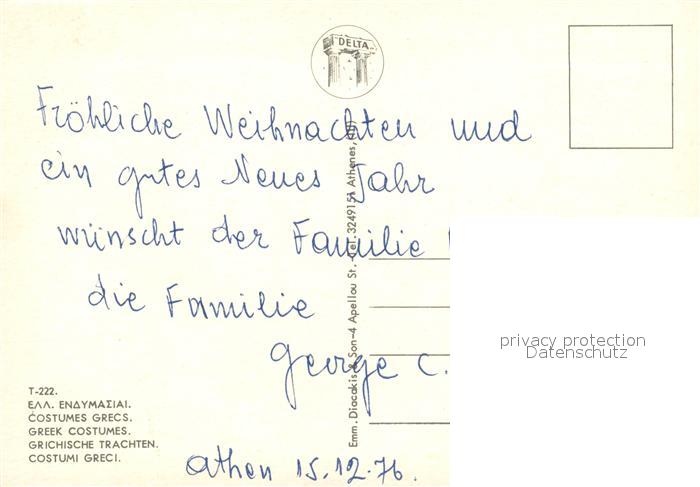 DELTA
Fröhliche Weihnachten und
ein gutes Neues Jahr
wünscht der Familie
die Familie
George C.
Athen 15.12.76.
Emm. Diacakis & Son-4 Apellou St.-Tel. 3249151 Athenes,
privacy protection
Datenschutz
T-222.
ΕΛΛ. ΕΝΔΥΜΑΣΙΑΙ.
COSTUMES GRECS.
GREEK COSTUMES.
GRICHISCHE TRACHTEN.
COSTUMI GRECI.